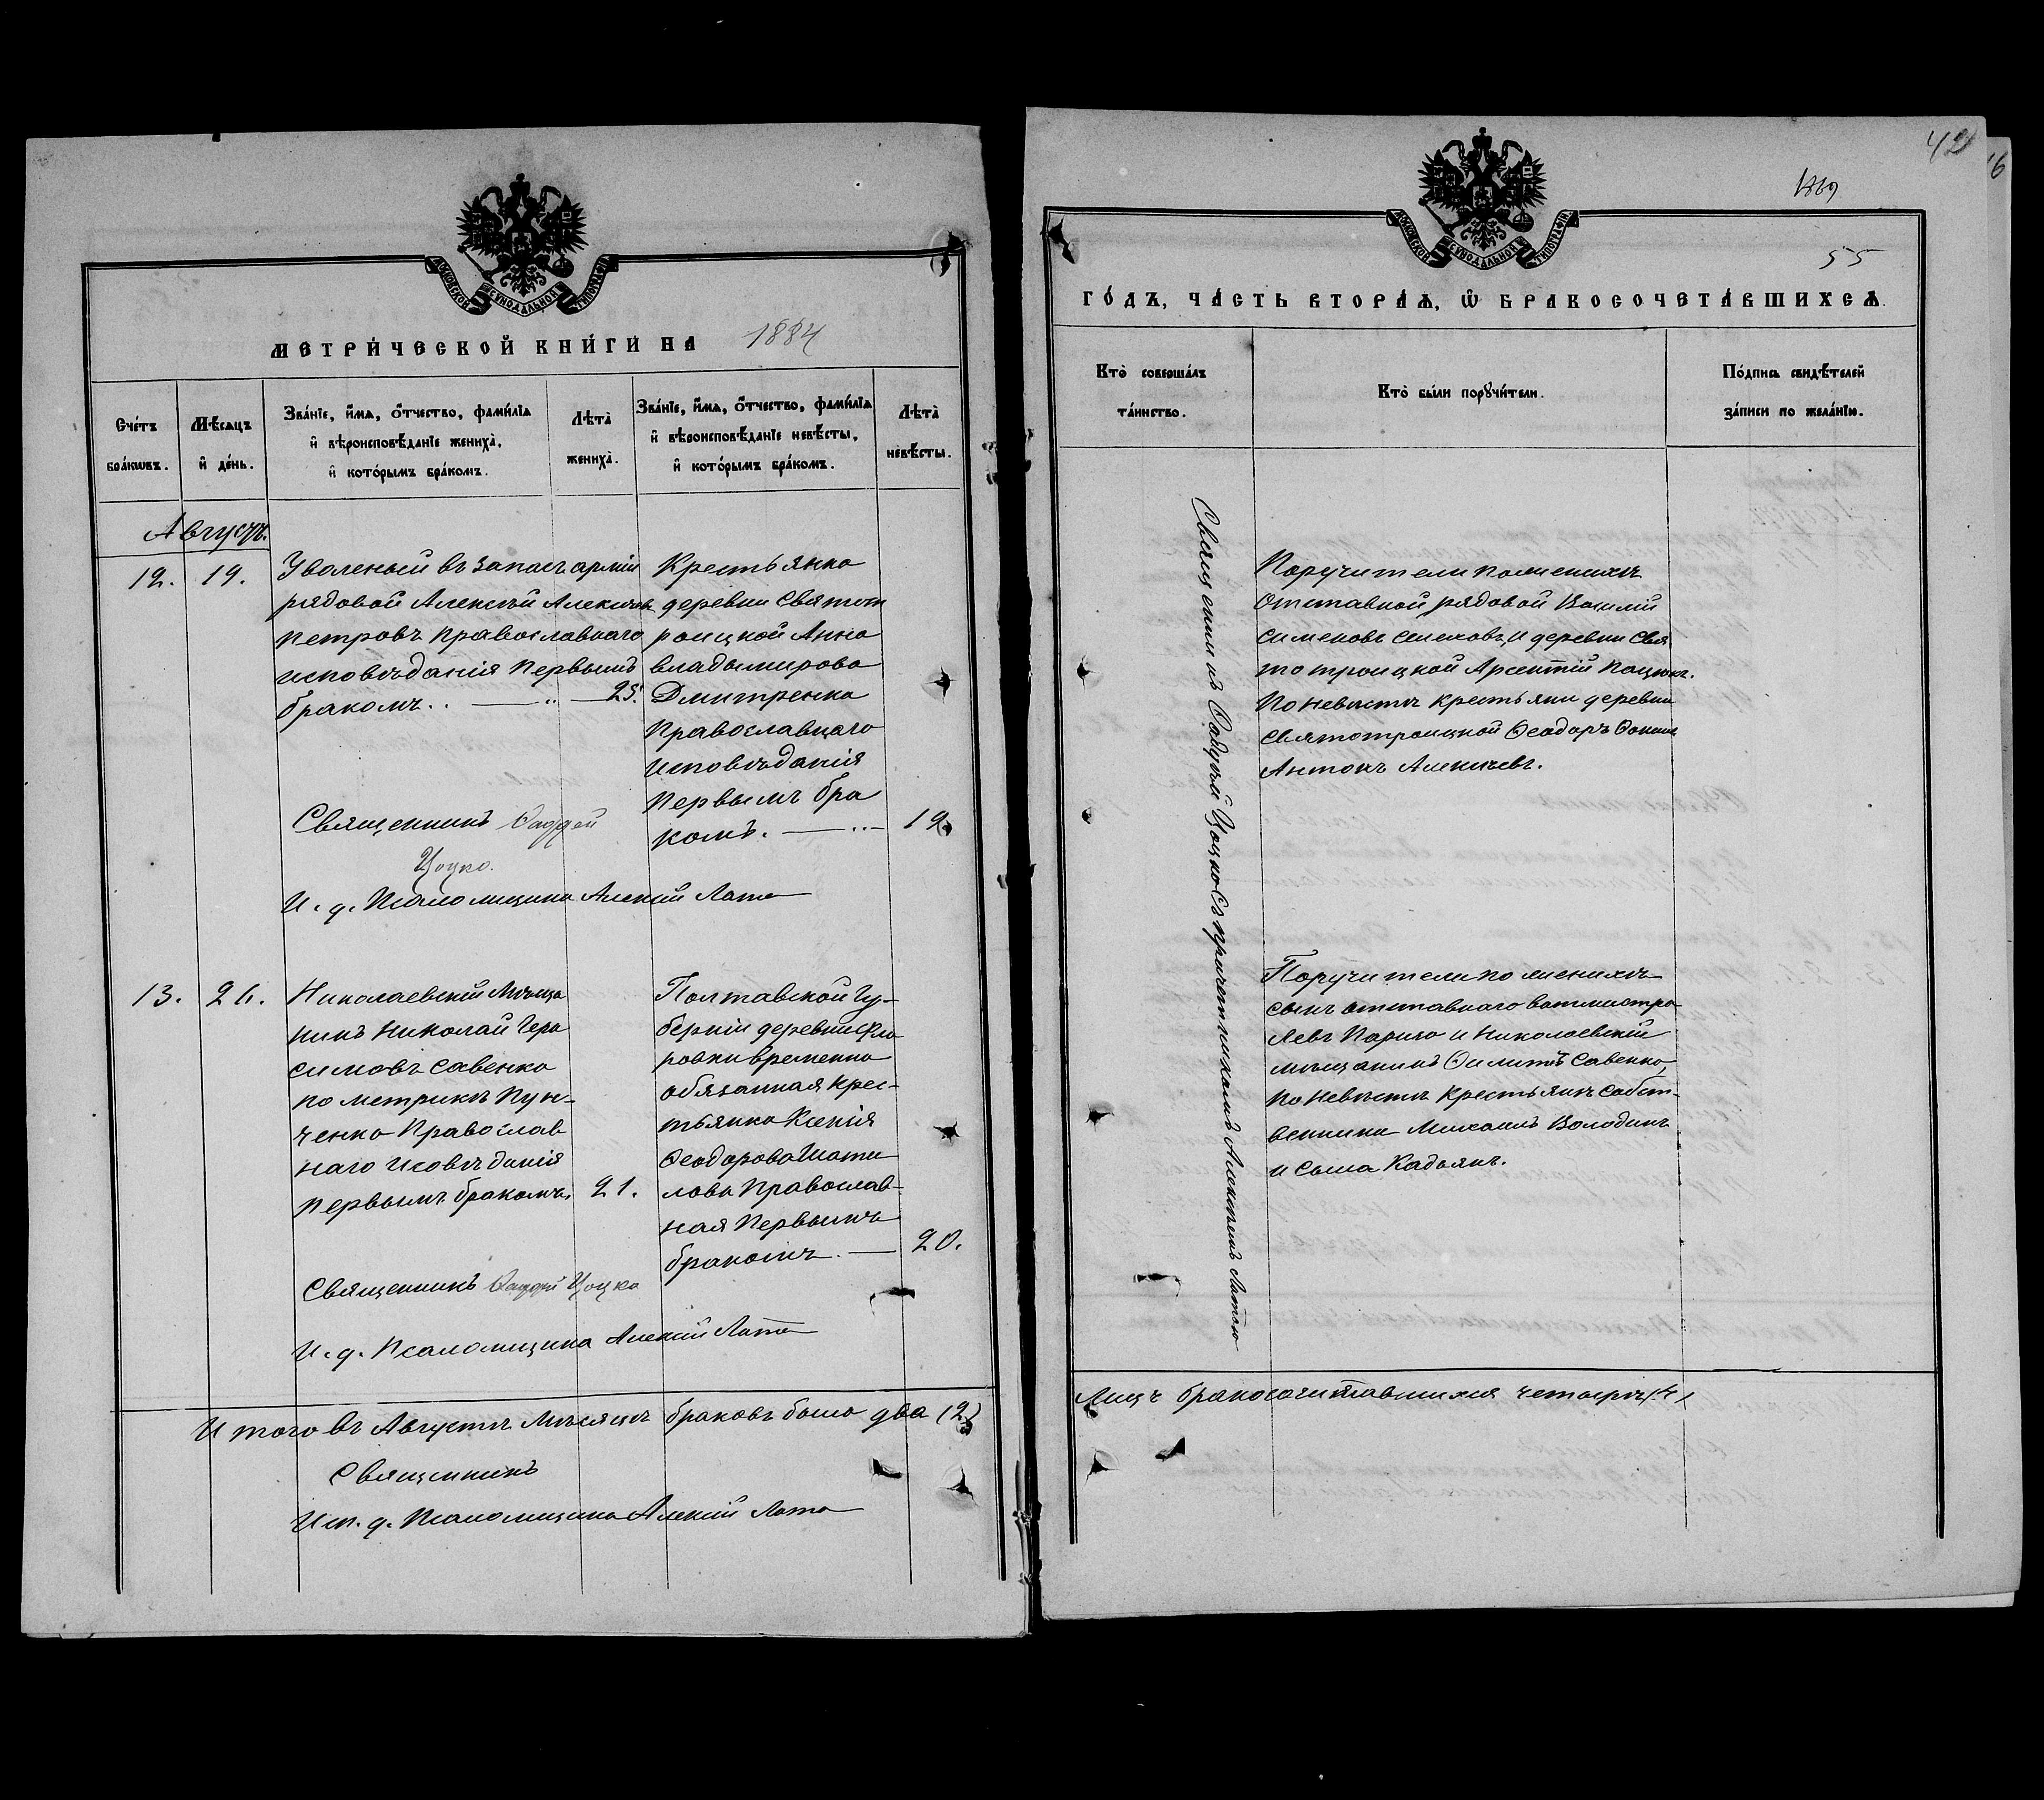 МОСКОВСКОЙ СѴНОДАЛЬНОЙ ТИПОГРАФІИ
МЕТРИ́ЧЕСКОЙ КНИ́ГИ НА 1884
Сче́тъ бра́кωвъ.
Мѣ́сѧцъ и҆ де́нь.
Зва́нїе, и҆́мѧ, ѻ҆́тчество, фами́лїѧ
и҆ вѣроисповѣ́данїе женихà,
и҆ кото́рымъ бра́комъ.
Лѣ́тà женихà.
Зва́нїе, и҆́мѧ, ѻ҆́тчество, фами́лїѧ
и҆ вѣроисповѣ́данїе невѣ́сты,
и҆ кото́рымъ бра́комъ.
Лѣ́тà невѣ́сты.
Августъ.
12. 19.
Уволеный въ запасъ арміи
рядовой Алексѣй Алексѣевъ
Петровъ Православнаго
исповѣданія Первымъ
бракомъ. 25.
Крестьянка
деревни Святот
роицкой Анна
Владимирова
Дмитренко
Православнаго
Исповѣданія
Первымъ бра
комъ. 19.
Священникъ Ѳаддей
Цоцко.
И. д. Псаломщика Алексій Лата
13. 26.
Николаевскій Мѣща
нинъ Николай Гера
симовъ Савенко
по метрикѣ Пун-
ченко Православ
наго Исовѣданія
Первымъ бракомъ. 21.
Полтавской Гу-
берніи деревни Фло
ровки временно
обязанная крес-
тьянка Ксенія
Ѳеодорова Шати
лова Православ-
ная Первымъ
бракомъ. 20.
Священникъ Ѳаддей Цоцко
И. д. Псаломщика Алексій Лата
Итого въ Августѣ Мѣсяцѣ браковъ было два (2)
Священникъ
Исп. д. Псаломщика Алексій Лата
42
16
1869
55
МОСКОВСКОЙ СѴНОДАЛЬНОЙ ТИПОГРАФІИ
ГО́ДЪ, ЧА́СТЬ ВТОРА́Ѧ, Ѡ҆ БРАКОСОЧЕТА́ВШИХСѦ.
Кто̀ соверша́лъ
та́инство.
Кто̀ бы́ли порꙋчи́тели.
По́дпись свидѣ́телей
за́писи по жела́нїю.
Священникъ Ѳаддей Цоцко съ причетникомъ Алексѣемъ Латою
Поручители по женихѣ
Отставной рядовой Василій
Сименовъ Селеховъ, и деревни Свя
тотроицкой Арсентій Пацюкъ.
По Невѣстѣ крестьяни деревни
Святотроицкой Ѳеодоръ Ѳоминъ
Антонъ Алексѣевъ.
Поручители по женихѣ
сынъ отставнаго вахмистра
Левъ Парило и Николаевскій
мѣщанинъ Филипъ Савенко,
По Невѣстѣ Крестьянъ собст-
венники Михаилъ Володинъ
и Сыма Кадьянъ.
Лицъ бракосочитавшихся четыри (4)